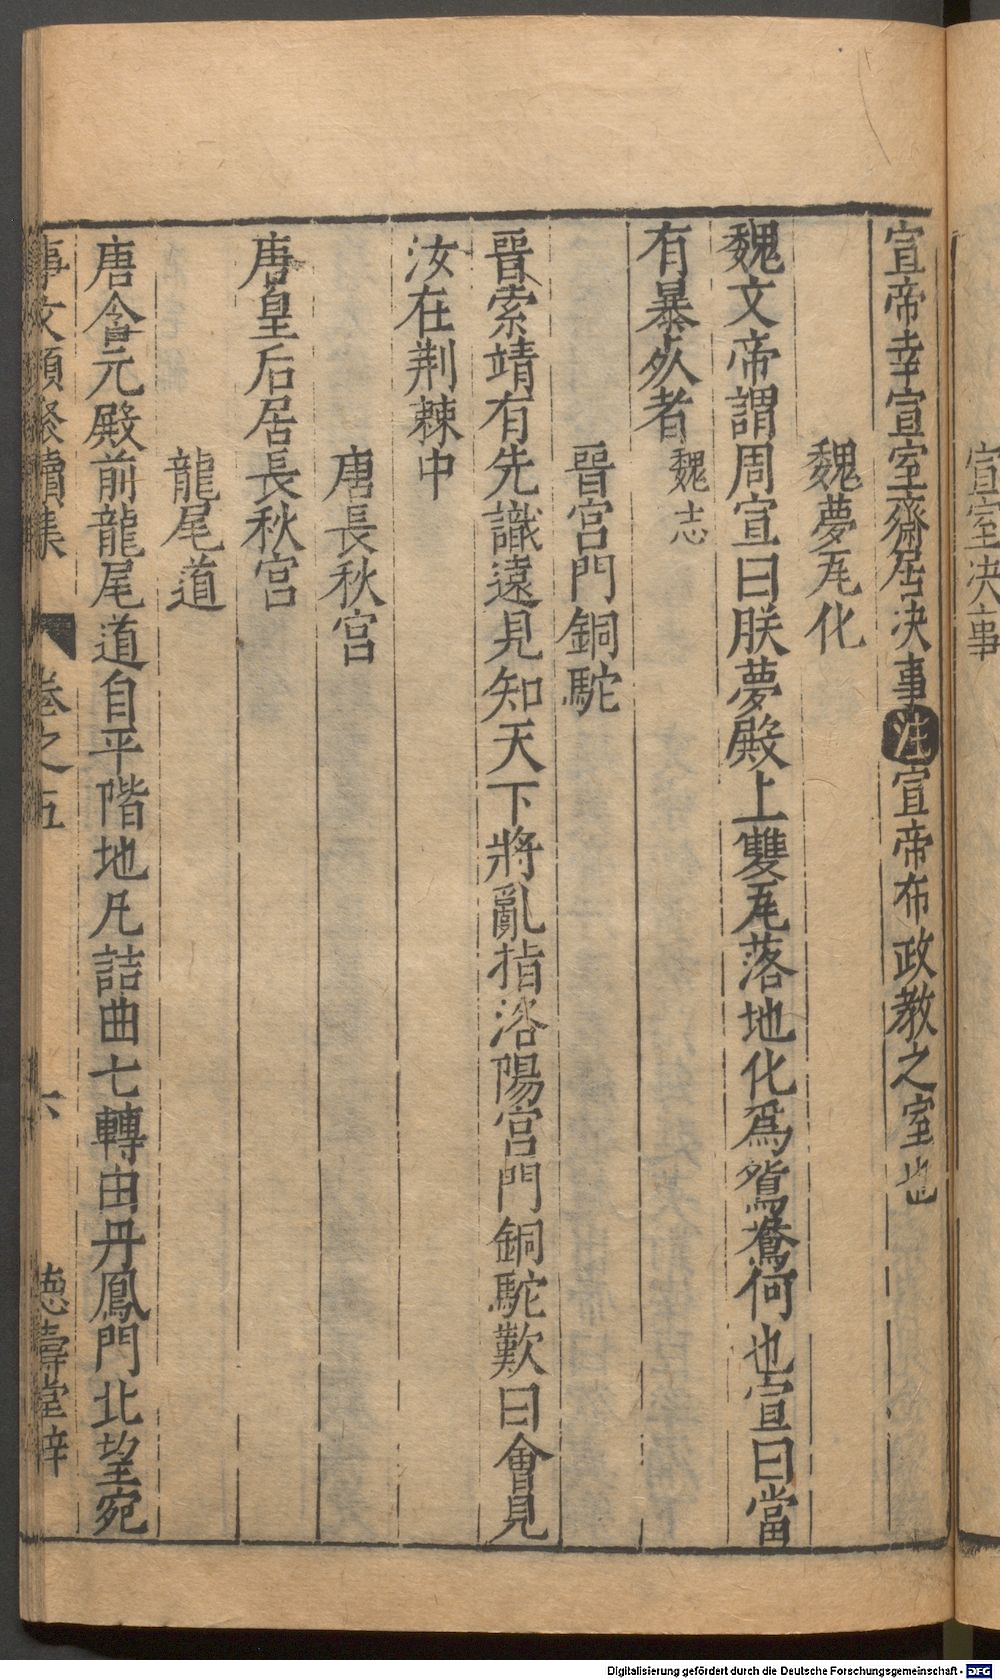 宣室決事
宣帝幸宣室齋居決事注宣帝布政教之室也
魏夢瓦化
魏文帝謂周宣曰朕夢殿上雙瓦落地化爲鴛鴦何也宣曰當
有暴死者 魏志
晉宫門銅駝
晉索靖有先識遠見知天下將亂指洛陽宫門銅駝歎曰會見
汝在荆棘中
唐長秋宫
唐皇后居長秋宫
龍尾道
唐含元殿前龍尾道自平階地凡詰曲七轉由丹鳳門北望宛
事文類聚續集 卷之五 六 德壽堂梓
Digitalisierung gefördert durch die Deutsche Forschungsgemeinschaft - DFG